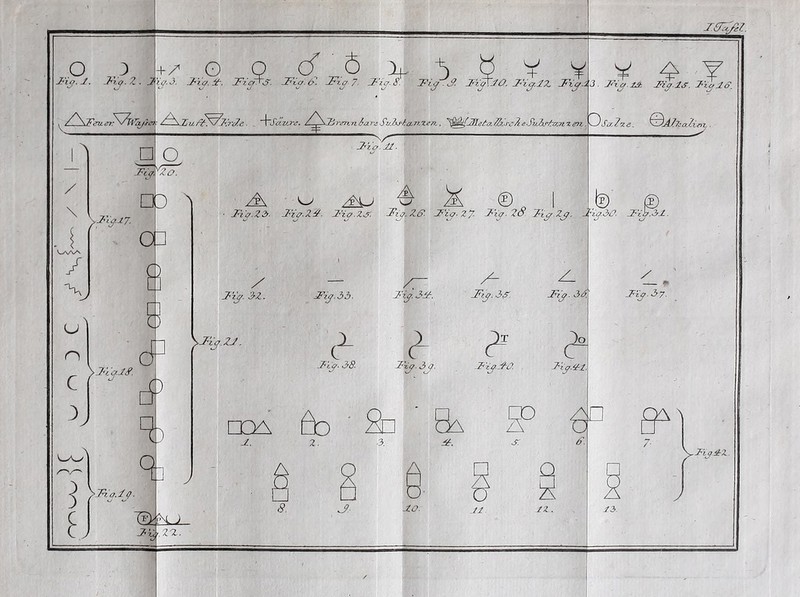 I. Tafel.
Fig. 1. Fig. 2. Fig. 3. Fig. 4. Fig. 5. Fig. 6. Fig. 7. Fig. 8. Fig. 9. Fig. 10. Fig. 12. Fig. 13. Fig. 14. Fig. 15. Fig. 16.
Feuer Wasser Luft. Erde. Säure. Brennbare Substanzen. Metallische Substanzen Salze. Alkalien.
Fig. 11.
Fig. 20.
P P P P P P P
Fig. 17. Fig. 23. Fig. 24. Fig. 25. Fig. 26. Fig. 27. Fig. 28 Fig. 29. Fig. 30. Fig. 31.
Fig. 32. Fig. 33. Fig. 34. Fig. 35. Fig. 36. Fig. 37.
Fig. 21.
T
Fig. 18. Fig. 38. Fig. 39. Fig. 40. Fig. 41.
1. 2. 3. 4. 5. 6. 7.
Fig. 42.
Fig. 19. 8. 9. 10. 11 12. 13.
P
Fig. 22.